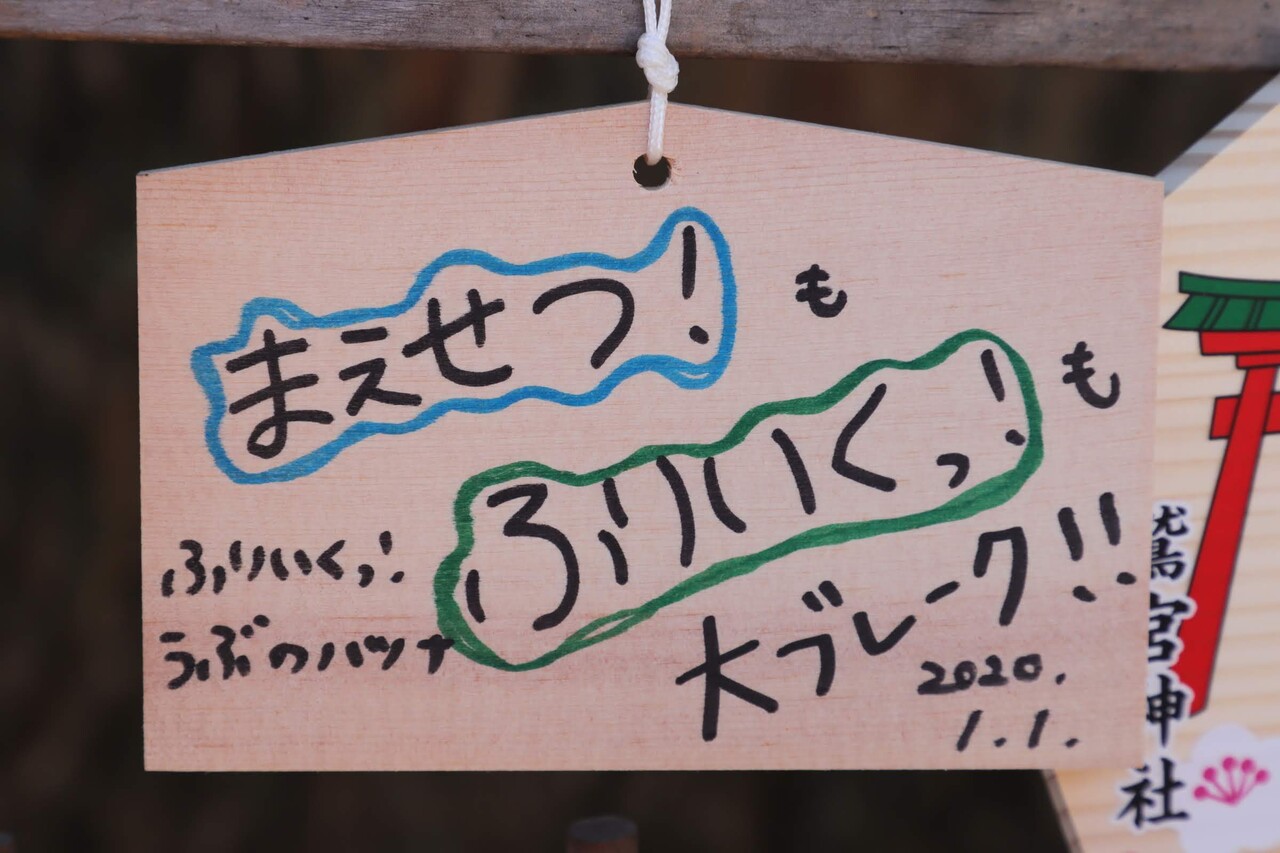 まえせつ!も
ふりいくっ!も
大ブレーク!!
ふりいくっ!
うぶのハツナ
2020.
1.1.
鷲宮神社